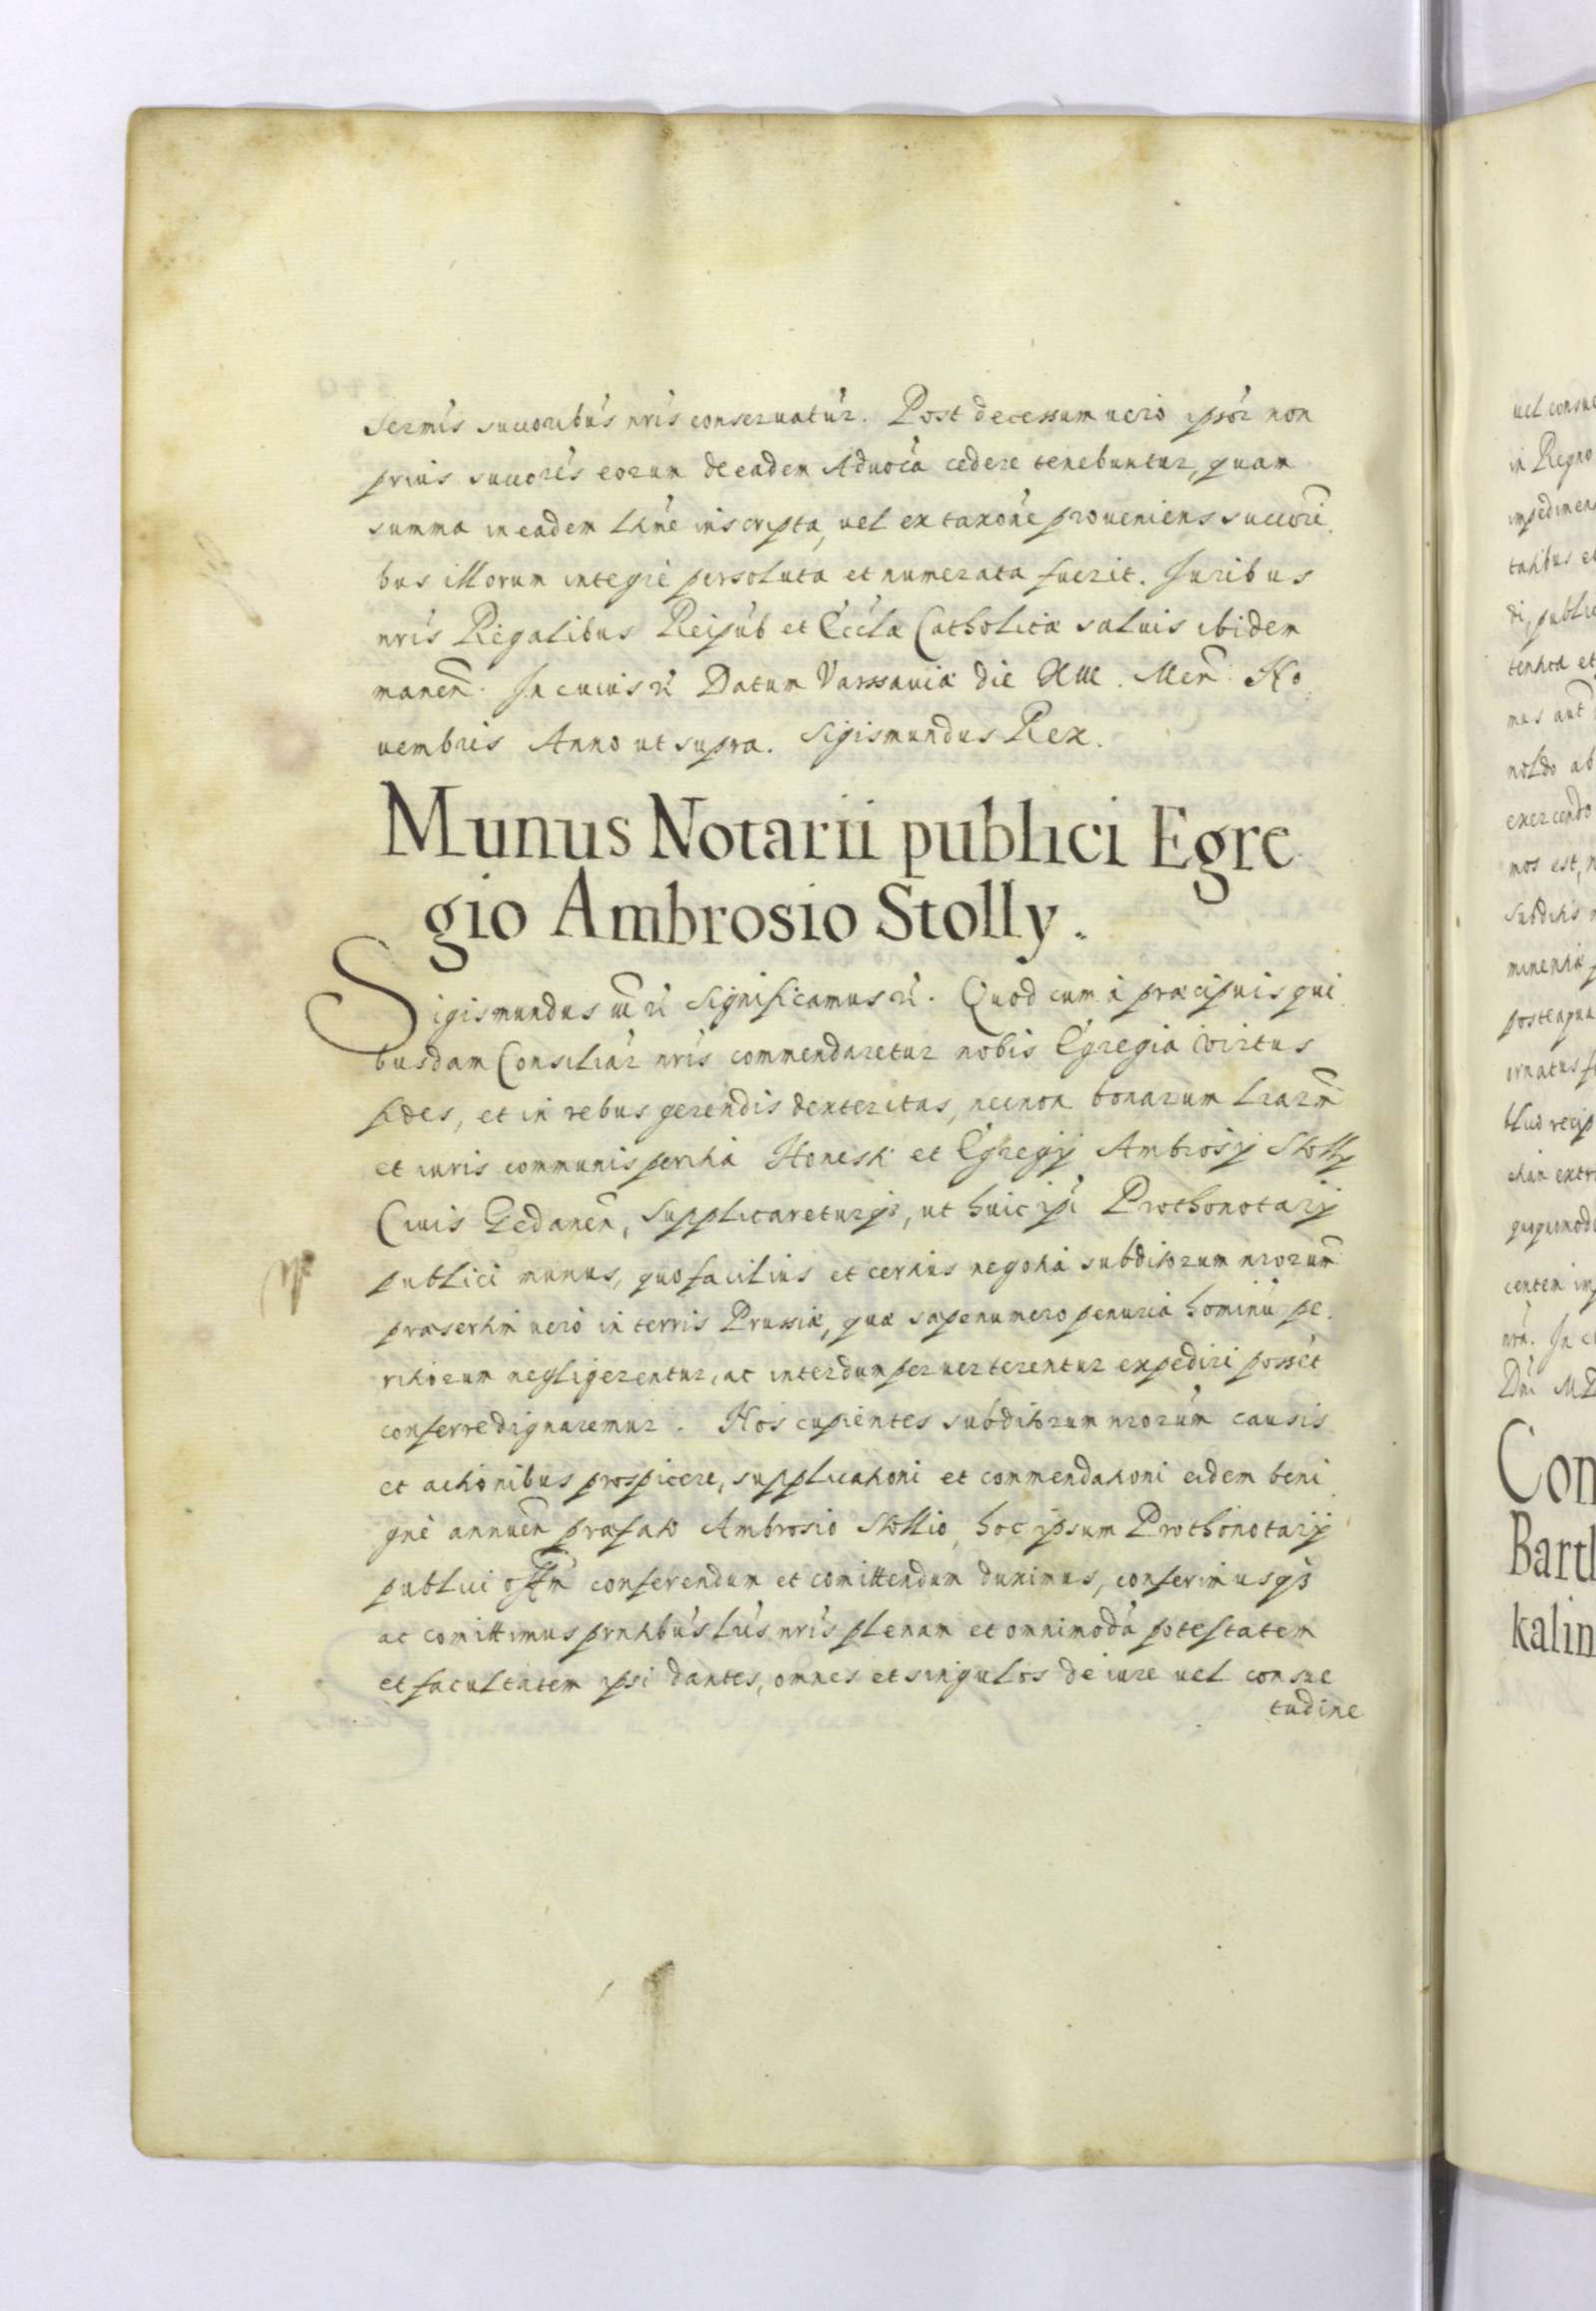 Sermis succoribus nris conseruatur. Post decessum uero ipsor non
prius succores eorum de eadem Aduoca cedere tenebuntur, quam
summa in eadem lrme inscripta, uel ex taxone proueniens succori
bus illorum integre persoluta et numerata fuerit. Juribus
nris Regalibus Reipub et Eccla Catholicæ saluis ibidem
manen. In cuius rei Datum Varssauiæ die XIII. Men. No
uembris Anno ut supra. Sigismundus Rex.
Munus Notarii publici Egre
gio Ambrosio Stolly.
Sigismundus Significamus. Quod cum à præcipuis qui
busdam Consiliar nris commendaretur nobis Egregia virtus
fides, et in rebus gerendis dexteritas, necnon bonarum lrarum
et iuris communis peritia Honesti et Egregij Ambrosij Stolly
Ciuis Gedanen, supplicareturqz, ut huic ipi Prothonotarij
publici munus, quo facilius et certius negotia subditorum nrorum
præsertim uero in terris Prussiæ, quæ sæpenumero penuria hominu pe
ritorum negligerentur, ac interdum peruerterentur expediri posset
conferre dignaremur. Nos cupientes subditorum nrorum causis
et actionibus prospicere, supplicationi et commendationi eidem beni
gne annuen præfato Ambrosio Stollio, hoc ipsum Prothonotarij
publici offm conferendum et comittendum duximus, conferimusqz
ac comittimus prntibus lris nris plenam et omnimoda potestatem
et facultatem ipsi dantes, omnes et singulos de iure uel consue
tudine
uel consue
in Regno
impedimen
tatibus et
di, public
mus aut
noldo ab
exercendo
mos est, n
subditis n
minentiæ p
posteaqua
ornatus
centem imp
Con
Bartl
kalin